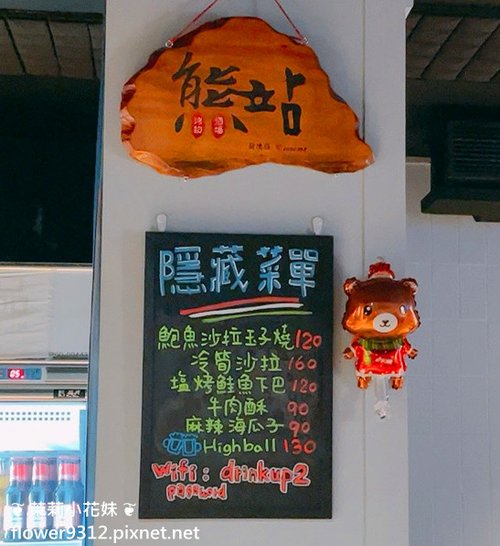 熊站
隱藏菜單
鮑魚沙拉玉子燒120
冷筍沙拉 160
塩烤鮭魚下巴120
牛肉酥 90
麻辣海瓜子 90
Highball 130
Wifi : drinkup2
password
05.
茉莉小花妹
flower9312.pixnet.net